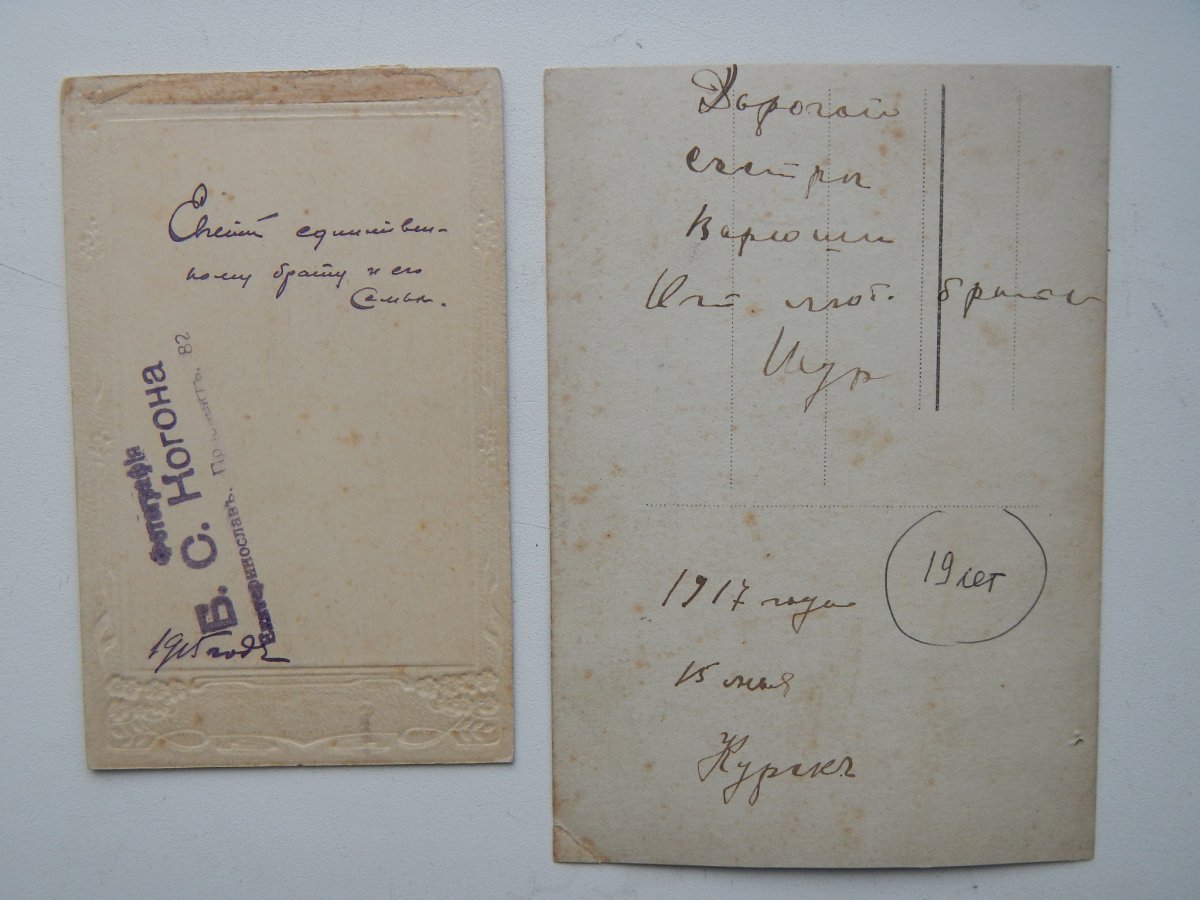 единствен-
ному брату и его
семьи.
Фотографія
Б. С. Когона
Екатеринославъ. Проспектъ 82
1915 годъ
Дорогой
сестры
Варюши
От люб. брата
Шур
19 лет
1917 года
15 июня
Курскъ